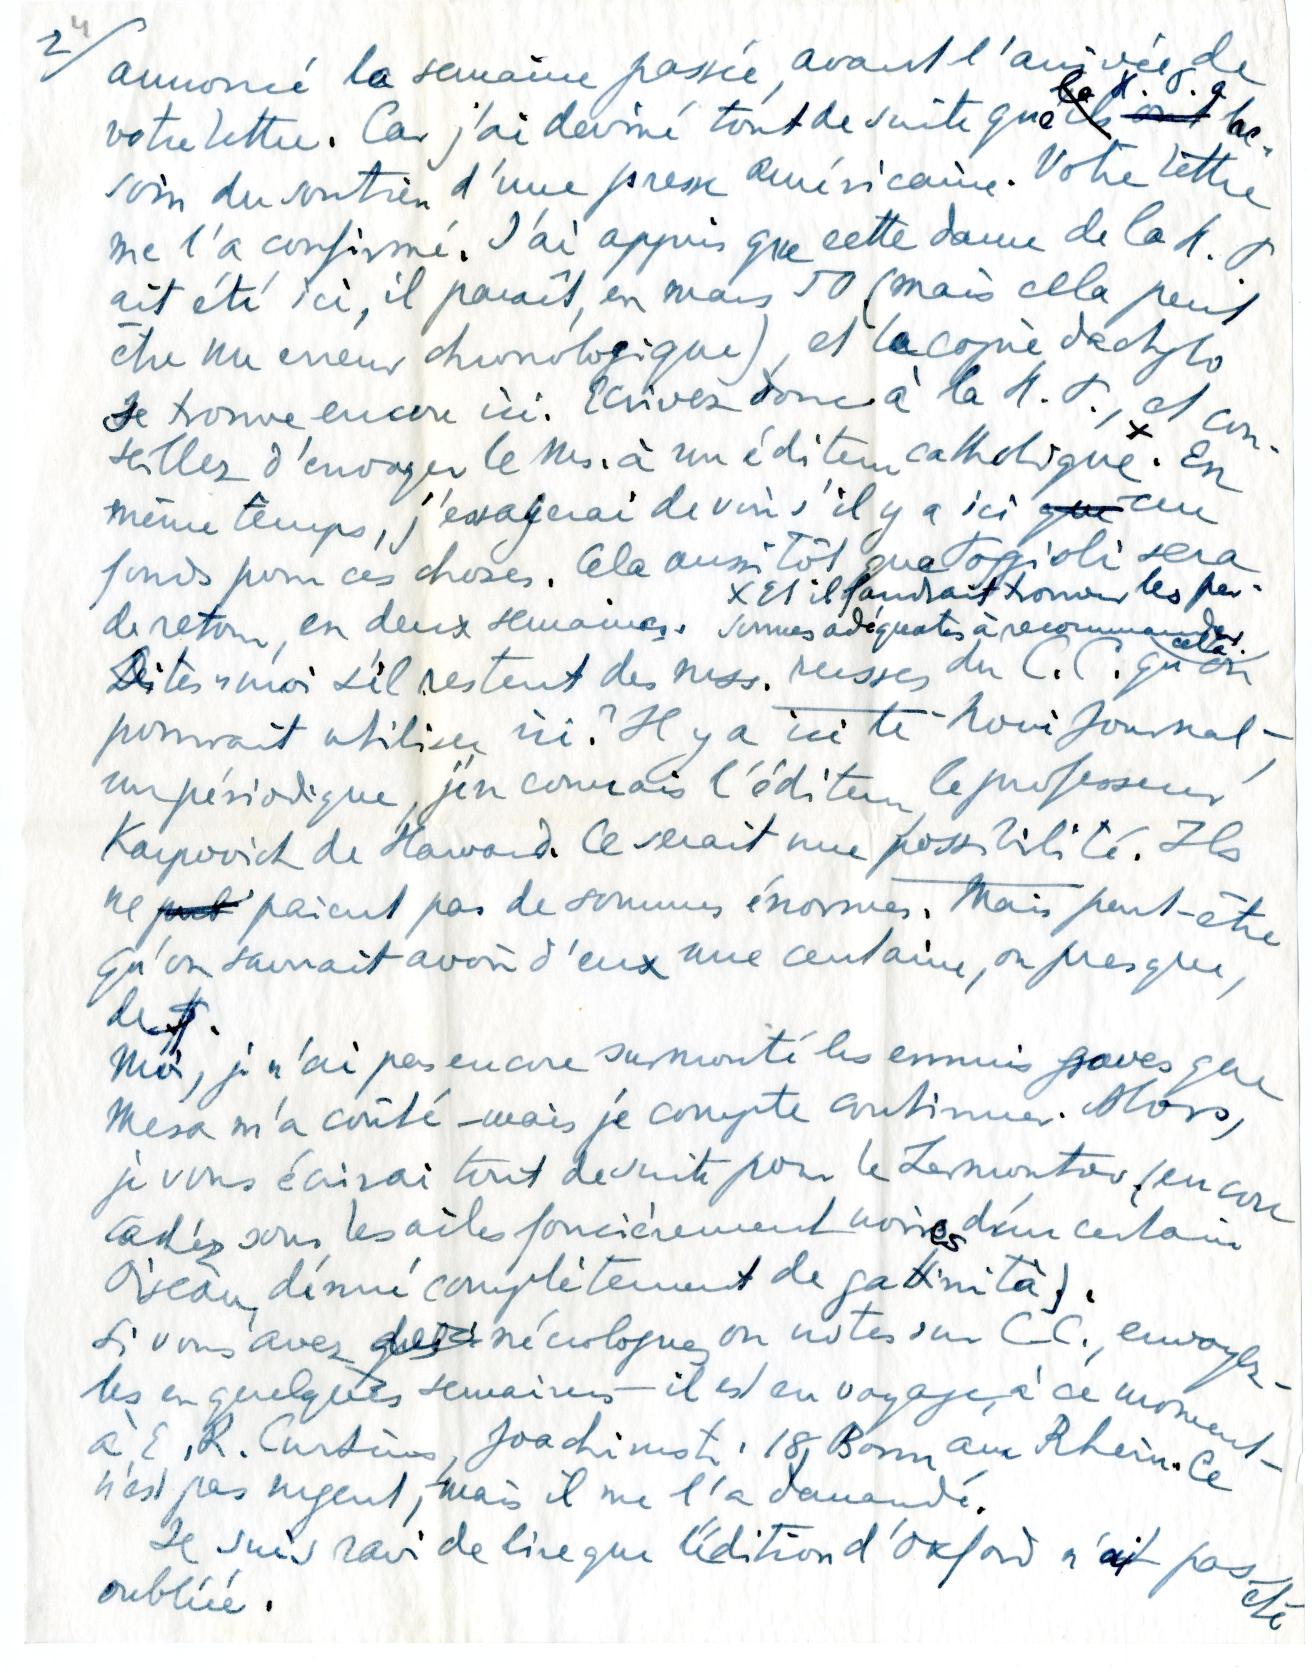 2/
annoncé la semaine passée, avant l'arrivée de
votre lettre. Car j'ai deviné tout de suite que la H. P. a be-
soin du soutien d'une presse américaine. Votre lettre
me l'a confirmé. J'ai appris que cette dame de la H. P.
ait été ici, il paraît, en mars 50 (mais cela peut
être une erreur chronologique), et la copie dactylo
se trouve encore ici. Ecrivez donc à la H. P., et con-
seillez d'envoyer le ms. à un éditeur catholique x. En
même temps, j'essayerai de voir s'il y a ici un
fonds pour ces choses. Cela aussitôt que Poggioli sera
x Et il faudrait trouver les per-
de retour, en deux semaines. sonnes adéquates à recommander cela.
Dites-moi s'il restent des mss. russes du C.C. qu'on
pourrait utiliser ici? Il y a ici le Novi Journal,-
un périodique, j'en connais l'éditeur, le professeur
Karpovich de Harvard. Ce serait une possibilité. Ils
ne paient pas de sommes énormes. Mais peut-être
qu'on saurait avoir d'eux une centaine, ou presque,
de $.
Moi, je n'ai pas encore surmonté les ennuis graves que
Mesa m'a coûté - mais je compte continuer. Alors,
je vous écrirai tout de suite pour le Lermontov (encore
cachés sous les ailes foncièrement noires d'un certain
Oiseau, dénué complètement de gattinità).
Si vous avez nécrologues ou notes sur C.C., envoyez-
les en quelques semaines - il est en voyage, à ce moment -
à E. R. Curtius, Joachimstr. 18, Bonn am Rhein. Ce
n'est pas urgent, mais il me l'a demandé.
Je suis ravi de lire que l'édition d'Oxford n'ait pas été
oubliée.